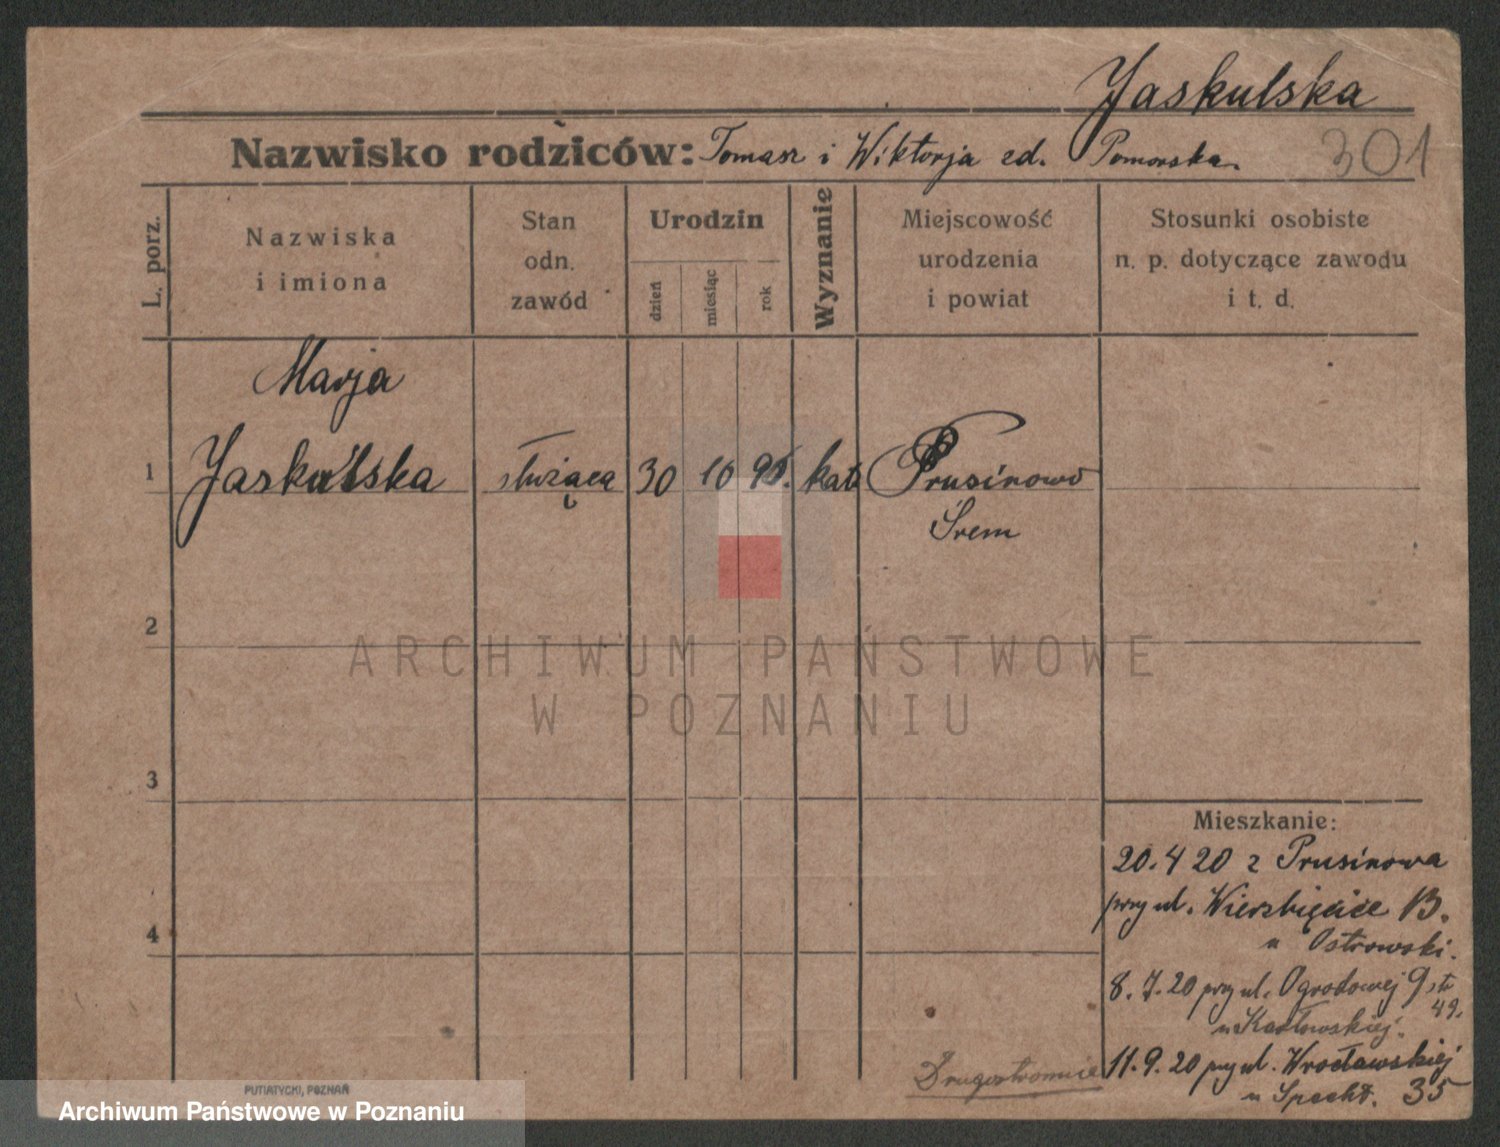 Jaskulska
Nazwisko rodziców: Tomasz i Wiktorja zd. Pomorska.
301
L. porz.
Nazwiska
i imiona
Stan
odn.
zawód
Urodzin
dzień
miesiąc
rok
Wyznanie
Miejscowość
urodzenia
i powiat
Stosunki osobiste
n. p. dotyczące zawodu
i t. d.
Marja
1 Jaskulska służąca 30 10 95. kat. Prusinowo
Śrem
2
3
4
ARCHIWUM PAŃSTWOWE
W POZNANIU
Mieszkanie:
20.4 20 z Prusinowa
przy ul. Wierzbięcice 13.
u Ostrowski.
8.7.20 przy ul. Ogrodowej 9
49.
u Kozłowskiej.
11.9.20 przy ul. Wrocławskiej
u Specht. 35
Drugostronnie
PUTIATYCKI, POZNAŃ
Archiwum Państwowe w Poznaniu